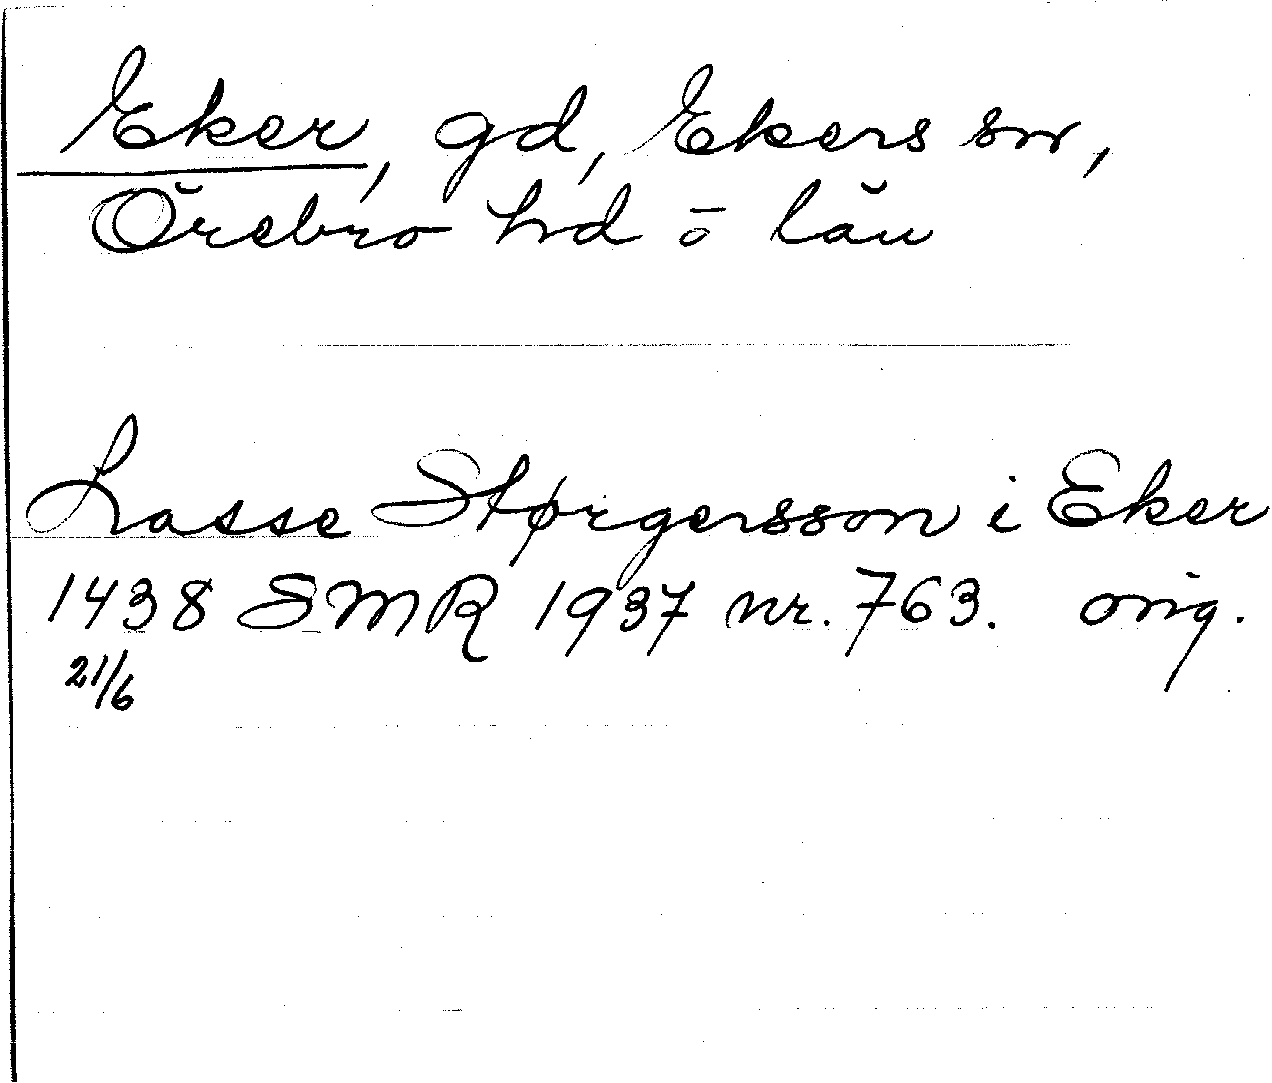 Eker, gd, Ekers sn,
Örebro hd o län
Lasse Størgersson i Eker
1438 SMR 1937 nr. 763. orig.
21/6